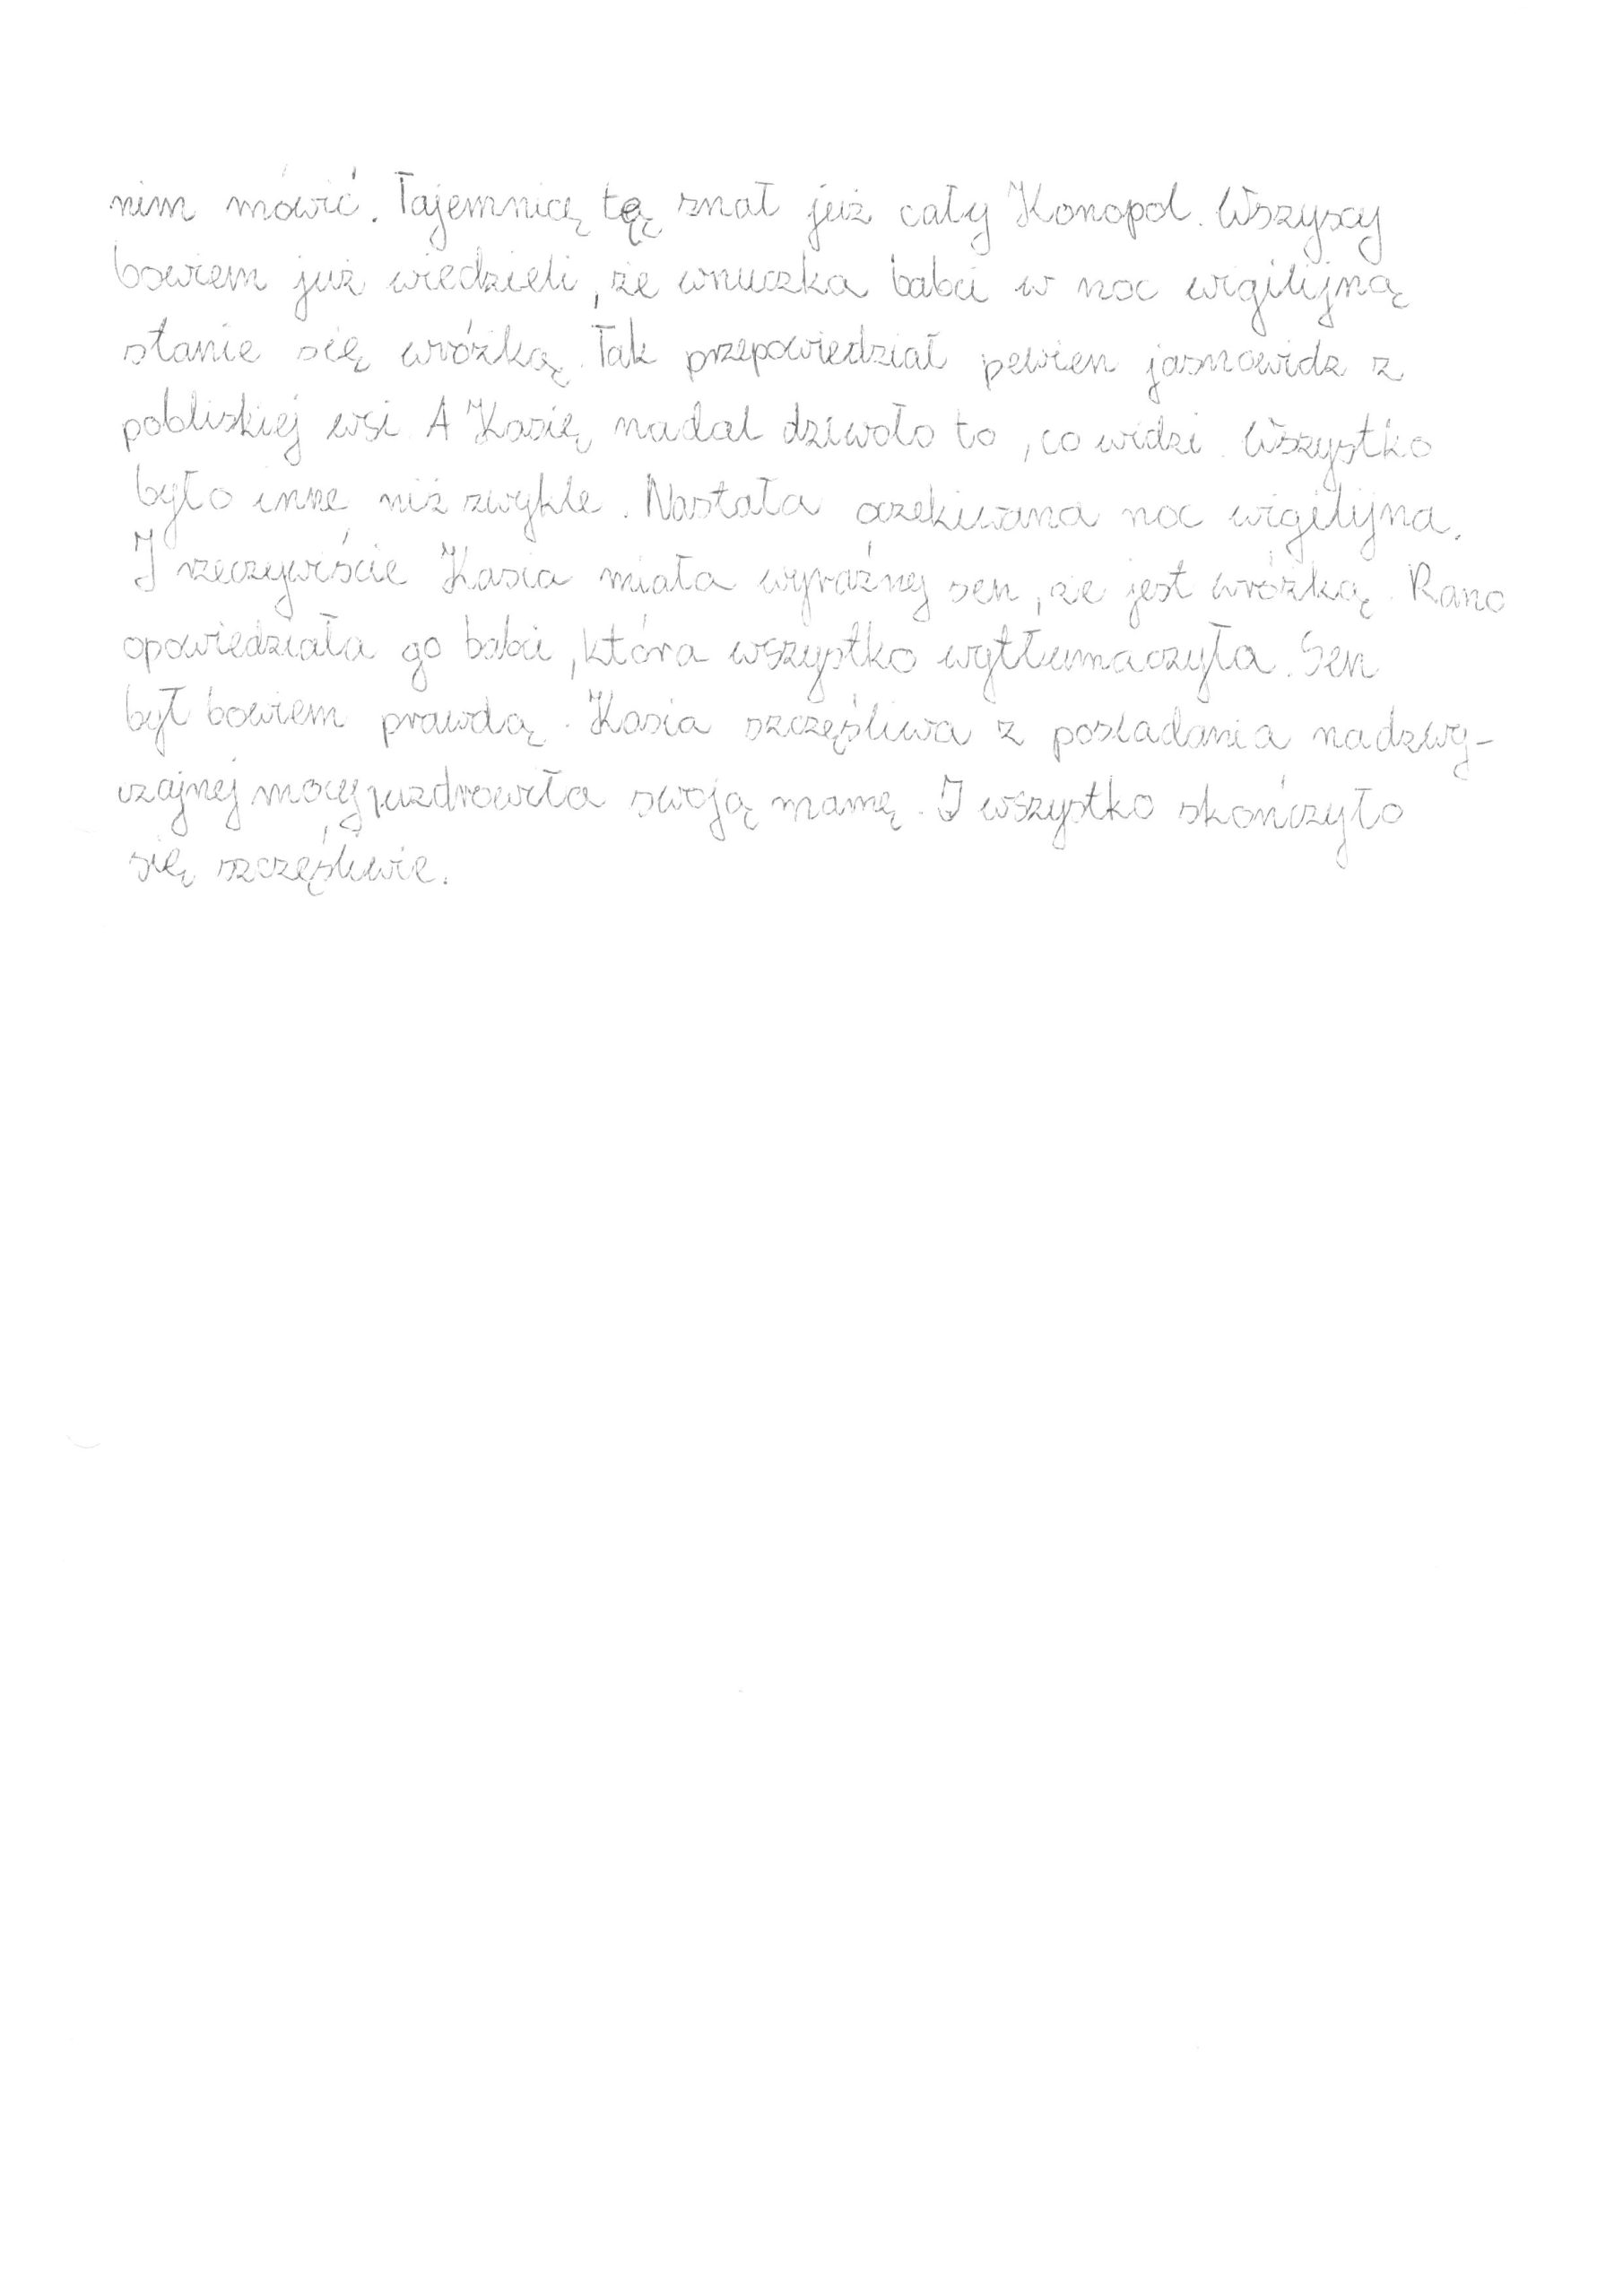 nim mówić. Tajemnicę tę znał już cały Konopol. Wszyscy
bowiem już wiedzieli, że wnuczka babci w noc wigilijną
stanie się wróżką. Tak przepowiedział pewien jasnowidz z
pobliskiej wsi. A Kasię nadal dziwoło to, co widzi. Wszystko
było inne niż zwykle. Nastała oczekiwana noc wigilijna.
I rzeczywiście Kasia miała wyraźny sen, że jest wróżką. Rano
opowiedziała go babci, która wszystko wytłumaczyła. Sen
był bowiem prawdą. Kasia szczęśliwa z posiadania nadzwy-
czajnej mocy, uzdrowiła swoją mamę. I wszystko skończyło
się szczęśliwie.